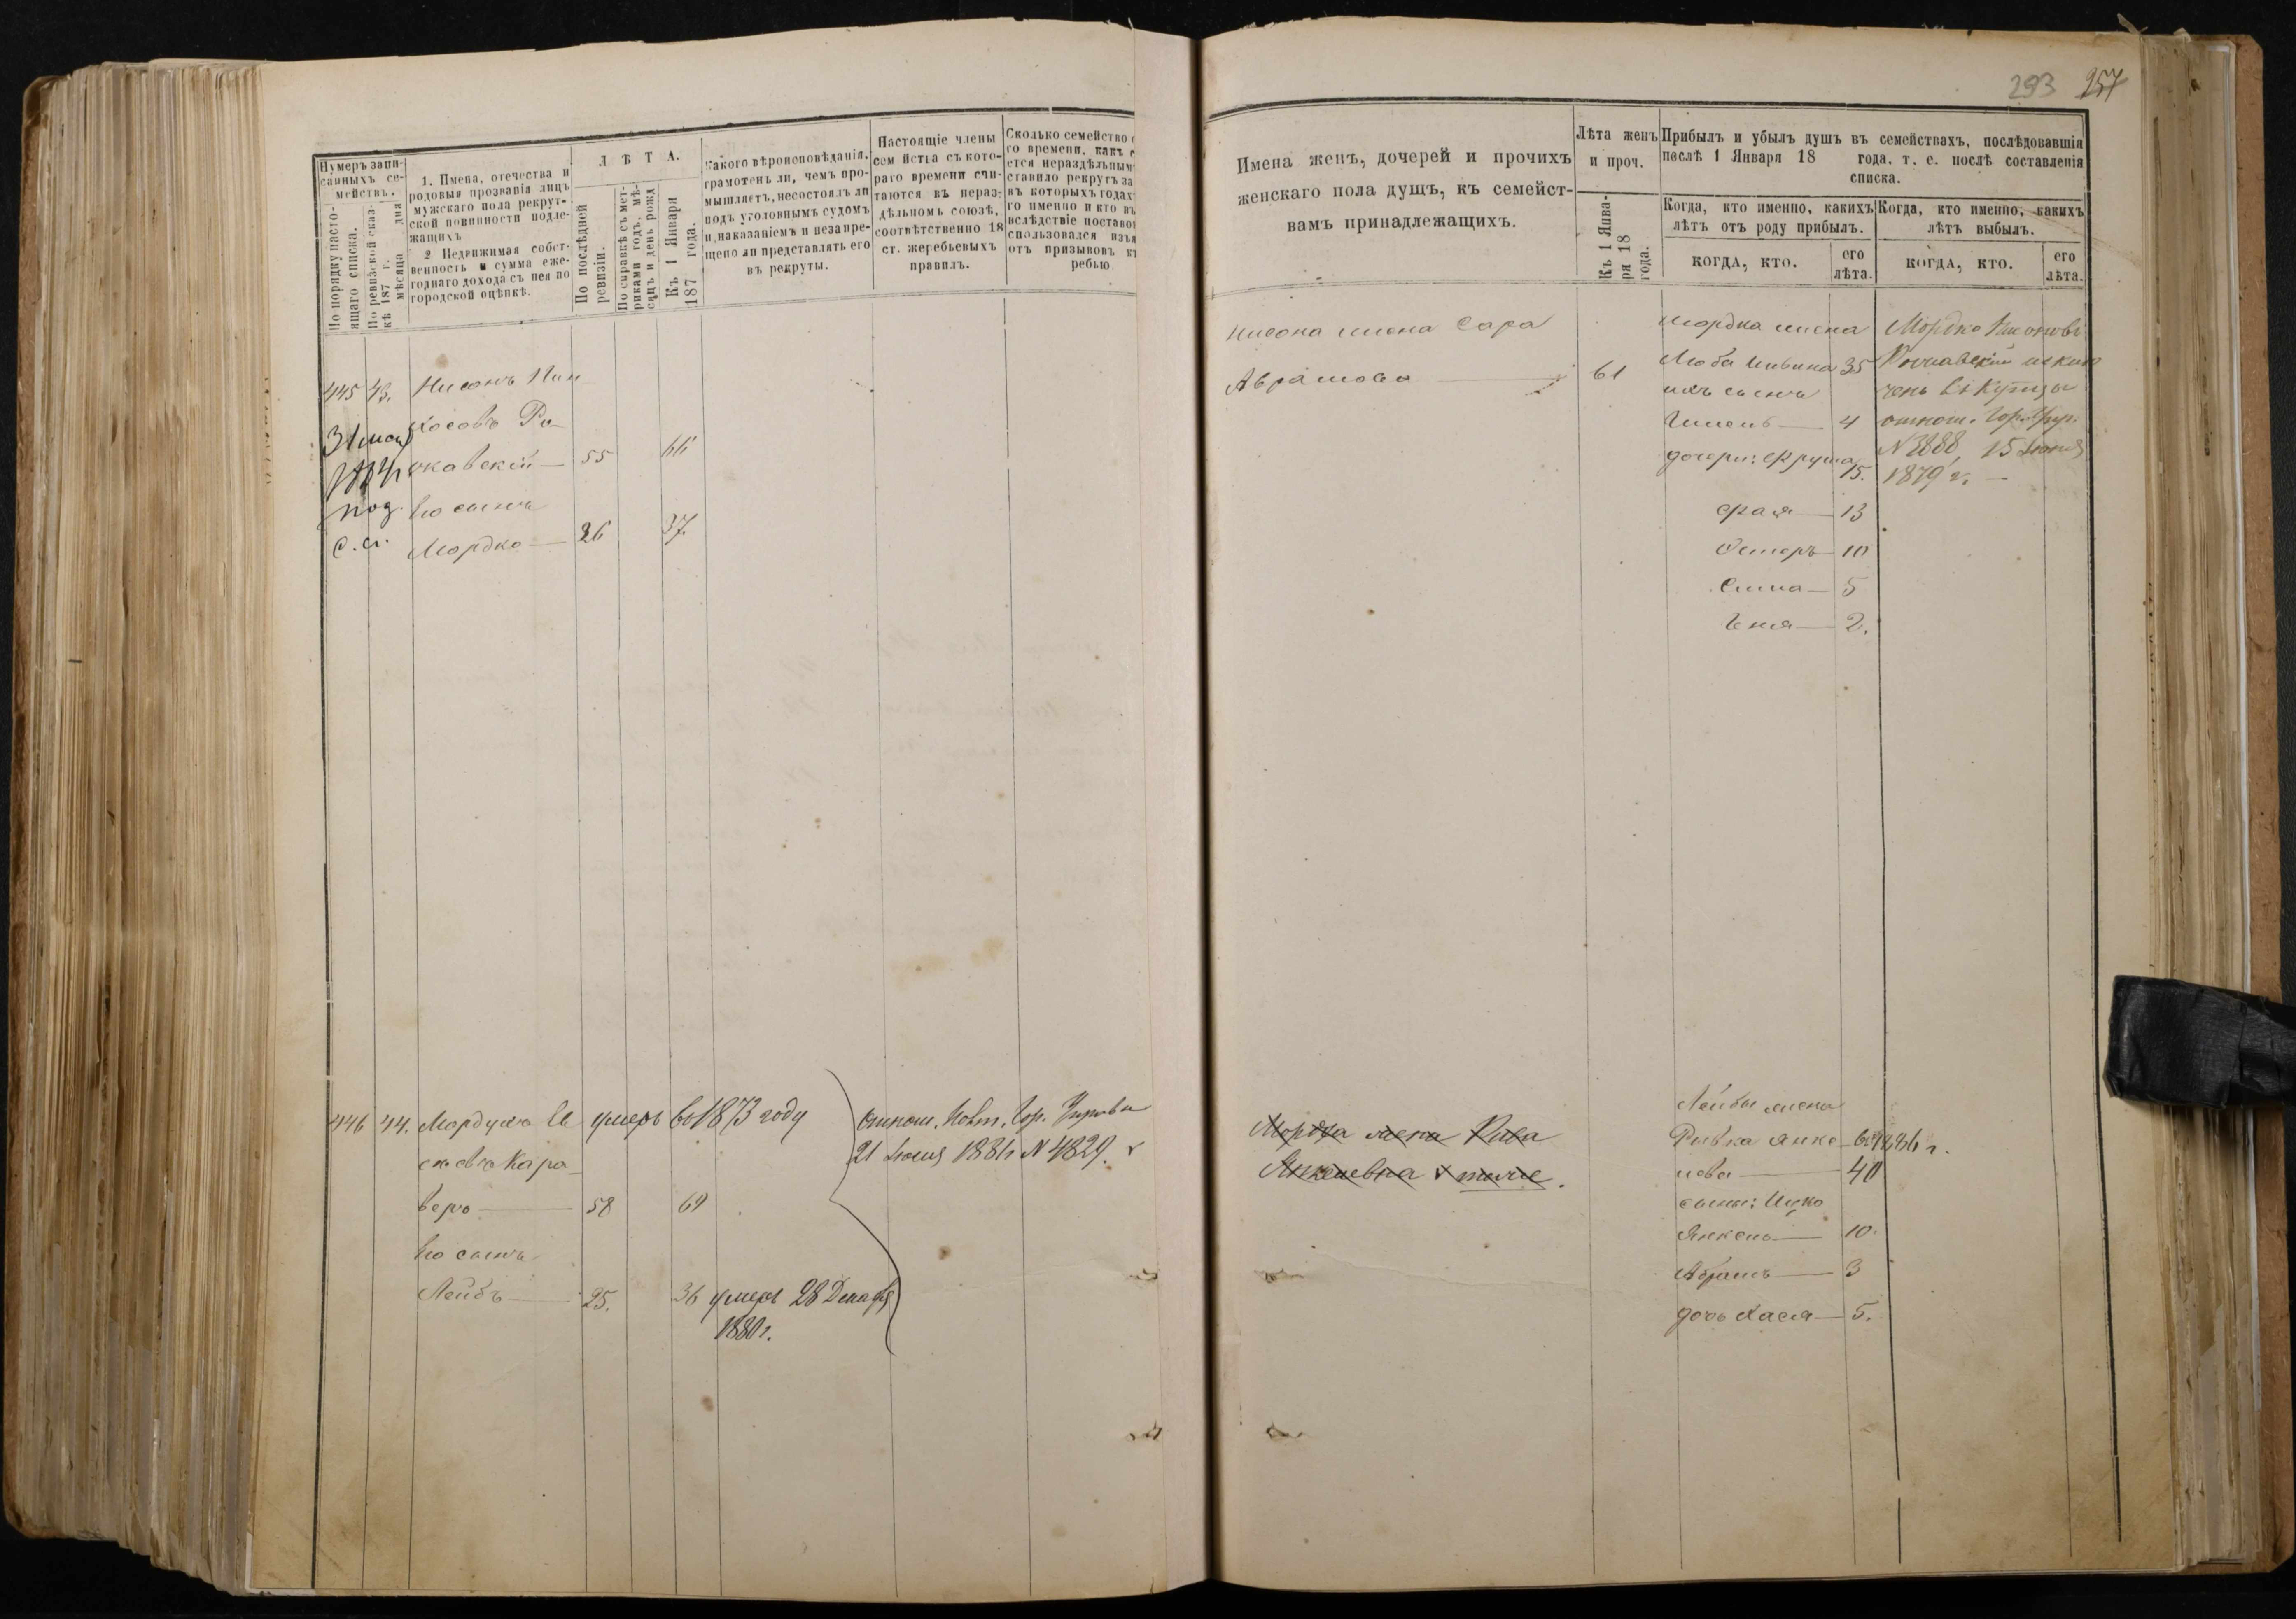 293 257
Нумеръ запи-
санныхъ се-
мействъ.
По порядку насто-
ящаго списка.
По ревизской сказ-
кѣ 187 г.
мѣсяца дня
1. Имена, отечества и
родовыя прозванія лицъ
мужскаго пола рекрут-
ской повинности подле-
жащихъ
2 Недвижимая собст-
венность и сумма еже-
годнаго дохода съ нея по
городской оцѣнкѣ.
ЛѢТА.
По послѣдней
ревизіи.
По справкѣ съ мет-
риками годъ, мѣ-
сяцъ и день рожд
Къ 1 Января
187 года.
Какого вѣроисповѣданія,
грамотенъ ли, чемъ про-
мышляетъ, несостоялъ ли
подъ уголовнымъ судомъ
и наказаніемъ и незапре-
щено ли представлять его
въ рекруты.
Настоящіе члены
сем йства съ кото-
раго времени счи-
таются въ нераз-
дѣльномъ союзѣ,
соотвѣтственно 18
ст. жеребьевыхъ
правилъ.
Сколько семейство с
го времени, какъ с
ется нераздѣльным
ставило рекрутъ за
въ которыхъ годах
го именно и кто въ
вслѣдствіе поставо
спользовался изъя
отъ призывовъ к
ребью
445 43. Нисонъ Пин
хосовъ Ро-
скавскій — 55 66
31 мая
под.
с. сп.
Его сынъ
Мордко — 26 37.
446 44. Мордухъ
Кара-
веръ — 58 69
умеръ въ 1873 году
отнош. Гор. Управы
21 Іюля 1881 г N 4829.
Его сынъ
Лейбъ — 25. 36 умеръ 28 Декабря
1880 г.
Имена женъ, дочерей и прочихъ
женскаго пола душъ, къ семейст-
вамъ принадлежащихъ.
Лѣта женъ
и проч.
Къ 1 Янва-
ря 18
года.
Прибылъ и убылъ душъ въ семействахъ, послѣдовавшія
песлѣ 1 Января 18 года. т. е. послѣ составленія
списка.
Когда, кто именно, какихъ
лѣтъ отъ роду прибылъ.
Когда, кто именно, какихъ
лѣтъ выбылъ.
КОГДА, КТО.
его
лѣта.
КОГДА, КТО.
его
лѣта.
Нисона жена Сара
Абрамова — 61
Мордка жена
Люба 35
ихъ сынъ
4
дочери: Фрума 15.
Фрая — 13
Эстеръ — 10
Сима — 5
Геня — 2.
Мордко Нисоновъ
исклю
ченъ въ Купцы
отнош. Гор. Упр.
N 3888, 15 Іюня
1879 г. —
Мордка жена Рива
Янкелевна тоже.
Лейбы жена
Ривка Янке- въ 1886 г.
лева — 40
сыны: Ицко
Янкель — 10.
Абрамъ — 3
дочь Хася — 5.